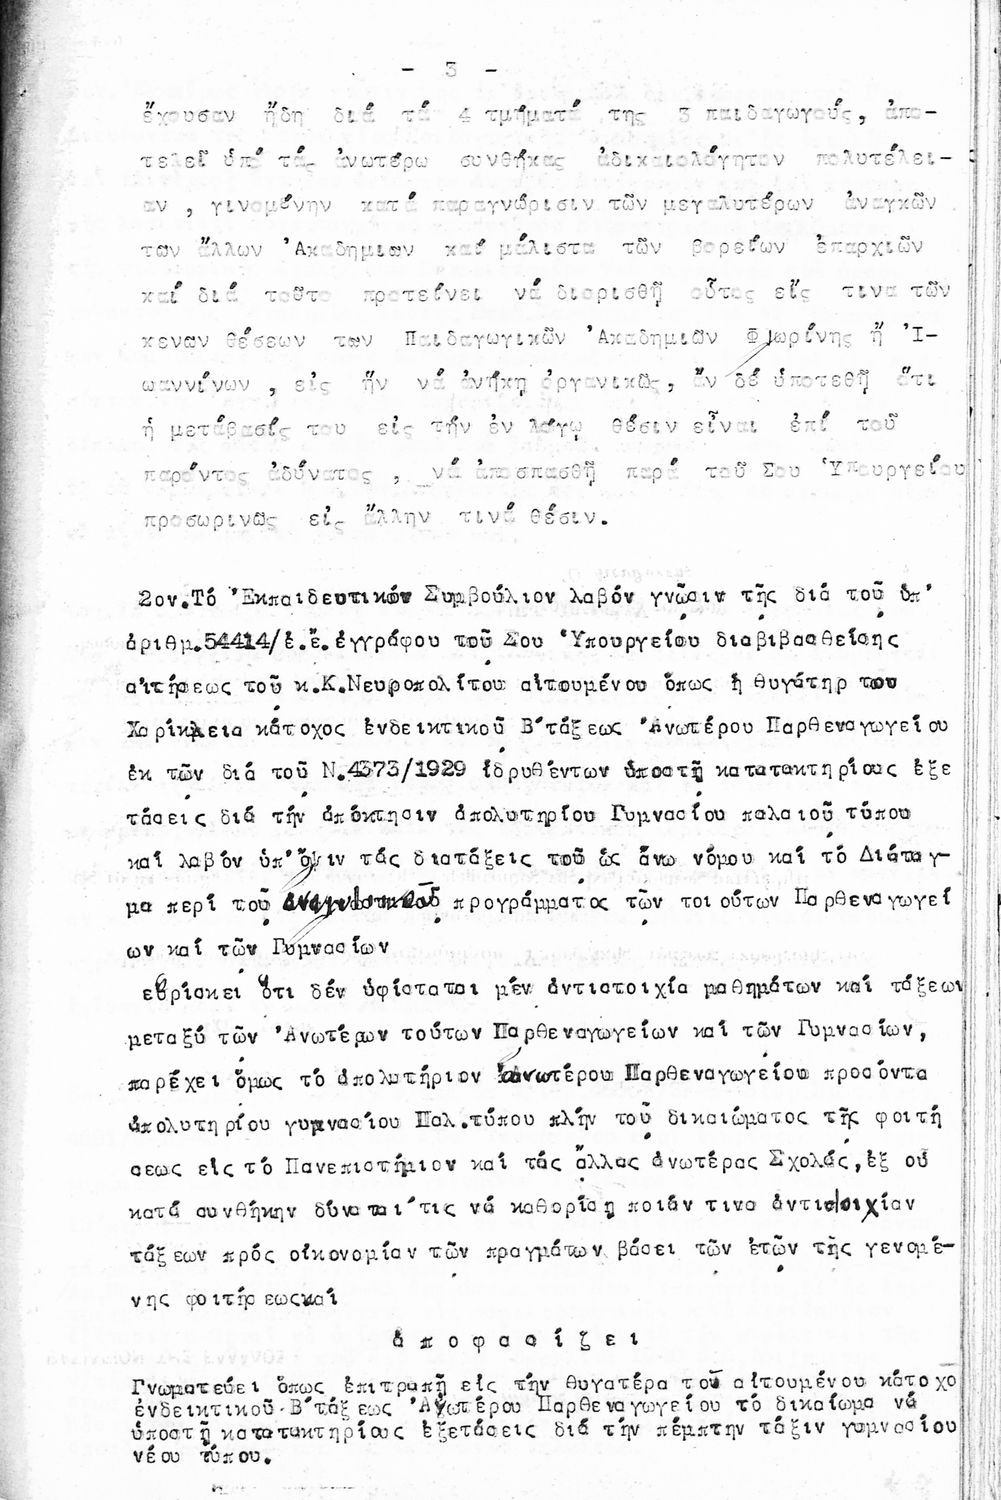 - 3 -
ἔχουσαν ἤδη διά τά 4 τμήματά της 3 παιδαγωγούς, ἀπο-
τελεῖ ὑπό τάς ἀνωτέρω συνθήκας ἀδικαιολόγητον πολυτέλει-
αν , γινομένην κατά παραγνώρισιν τῶν μεγαλυτέρων ἀναγκῶν
των ἄλλων Ἀκαδημιων καί μάλιστα τῶν βορείων ἐπαρχιῶν
καί διά τοῦτο προτείνει νά διορισθῇ οὗτος εἴς τινα τῶν
κενων θέσεων των Παιδαγωγικῶν Ἀκαδημιῶν Φλωρίνης ἤ Ἰ-
ωαννίνων , εἰς ἥν νά ἀνήκῃ ὀργανικῶς, ἄν δέ ὑποτεθῇ ὅτι
ἡ μετάβασίς του εἰς τήν ἐν λόγῳ θέσιν εἶναι ἐπί τοῦ
παρόντος ἀδύνατος , νά ἀποσπασθῇ παρά τοῦ Σου Ὑπουργείου
προσωρινῶς εἰς ἄλλην τινά θέσιν.
2ον.Τό Ἐκπαιδευτικόν Συμβούλιον λαβόν γνῶσιν τῆς διά τοῦ ὑπ'
ἀριθμ.54414/ἐ.ἔ.ἐγγράφου τοῦ Σου Ὑπουργείου διαβιβασθείσης
αἰτήσεως τοῦ κ.Κ.Νευροπολίτου αἰτουμένου ὅπως ἡ θυγάτηρ του
Χαρίκλεια κάτοχος ἐνδεικτικοῦ Β΄τάξεως Ἀνωτέρου Παρθεναγωγείου
ἐκ τῶν διά τοῦ Ν.4373/1929 ἱδρυθέντων ὑποστῇ κατατακτηρίους ἐξε
τάσεις διά τήν ἀπόκτησιν ἀπολυτηρίου Γυμνασίου παλαιοῦ τύπου
καί λαβόν ὑπ'ὄψιν τάς διατάξεις τοῦ ὡς ἄνω νόμου καί τό Διάταγ-
μα περί τοῦ ἀναγνωστικοῦ προγράμματος τῶν τοιούτων Παρθεναγωγεί
ων καί τῶν Γυμνασίων
εὑρίσκει ὅτι δέν ὑφίσταται μέν ἀντιστοιχία μαθημάτων καί τάξεων
μεταξύ τῶν Ἀνωτέρων τούτων Παρθεναγωγείων καί τῶν Γυμνασίων,
παρέχει ὅμως τό ἀπολυτήριον ἀνωτέρου Παρθεναγωγείου προσόντα
ἀπολυτηρίου γυμνασίου Παλ.τύπου πλήν τοῦ δικαιώματος τῆς φοιτή
σεως εἰς τό Πανεπιστήμιον καί τάς ἄλλας ἀνωτέρας Σχολάς,ἐξ οὗ
κατά συνθήκην δύναται τις νά καθορίσῃ ποιάν τινα ἀντιστοιχίαν
τάξεων πρός οἰκονομίαν τῶν πραγμάτων βάσει τῶν ἐτῶν τῆς γενομέ-
νης φοιτήσεωςκαί
ἀ π ο φ α σ ί ζ ε ι
Γνωματεύει ὅπως ἐπιτραπῇ εἰς τήν θυγατέρα τοῦ αἰτουμένου κάτοχο
ἐνδεικτικοῦ Β΄τάξεως Ἀνωτέρου Παρθεναγωγείου τό δικαίωμα νά
ὑποστῇ κατατακτηρίους ἐξετάσεις διά τήν πέμπτην τάξιν γυμνασίου
νέου τύπου.